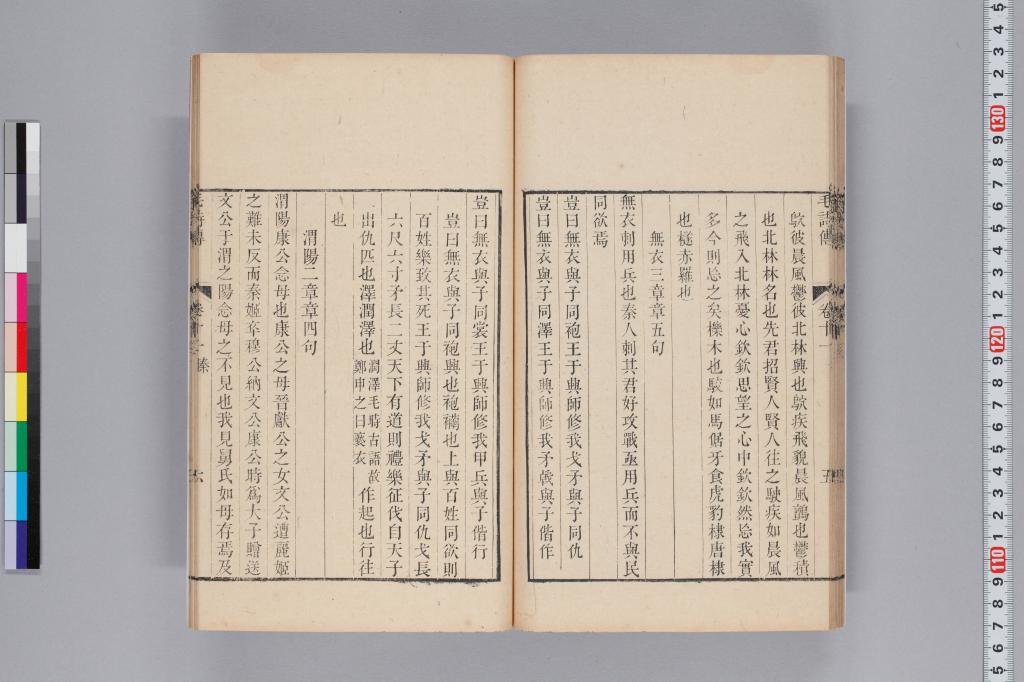 毛詩傳 卷十一 五
鴥彼晨風鬱彼北林興也鴥疾飛貌晨風鸇也鬱積
也北林林名也先君招賢人賢人往之駛疾如晨風
之飛入北林憂心欽欽思望之心中欽欽然忘我實
多今則忘之矣櫟木也駮如馬倨牙食虎豹棣唐棣
也檖赤羅也
無衣三章章五句
無衣刺用兵也秦人刺其君好攻戰亟用兵而不與民
同欲焉
豈曰無衣與子同袍王于興師修我戈矛與子同仇
豈曰無衣與子同澤王于興師修我矛戟與子偕作
豈曰無衣與子同裳王于興師修我甲兵與子偕行
豈曰無衣與子同袍興也袍襺也上與百姓同欲則
百姓樂致其死王于興師修我戈矛與子同仇戈長
六尺六寸矛長二丈天下有道則禮樂征伐自天子
出仇匹也澤潤澤也潤澤毛時古語故鄭申之曰褻衣作起也行往
也
渭陽二章章四句
渭陽康公念母也康公之母晉獻公之女文公遭麗姬
之難未反而秦姬卒穆公納文公康公時爲大子贈送
文公于渭之陽念母之不見也我見舅氏如母存焉及
毛詩傳 卷十一 秦 六
5 4 3 2 1 130 9 8 7 6 5 4 3 2 1 120 9 8 7 6 5 4 3 2 1 110 9 8 7 6 5